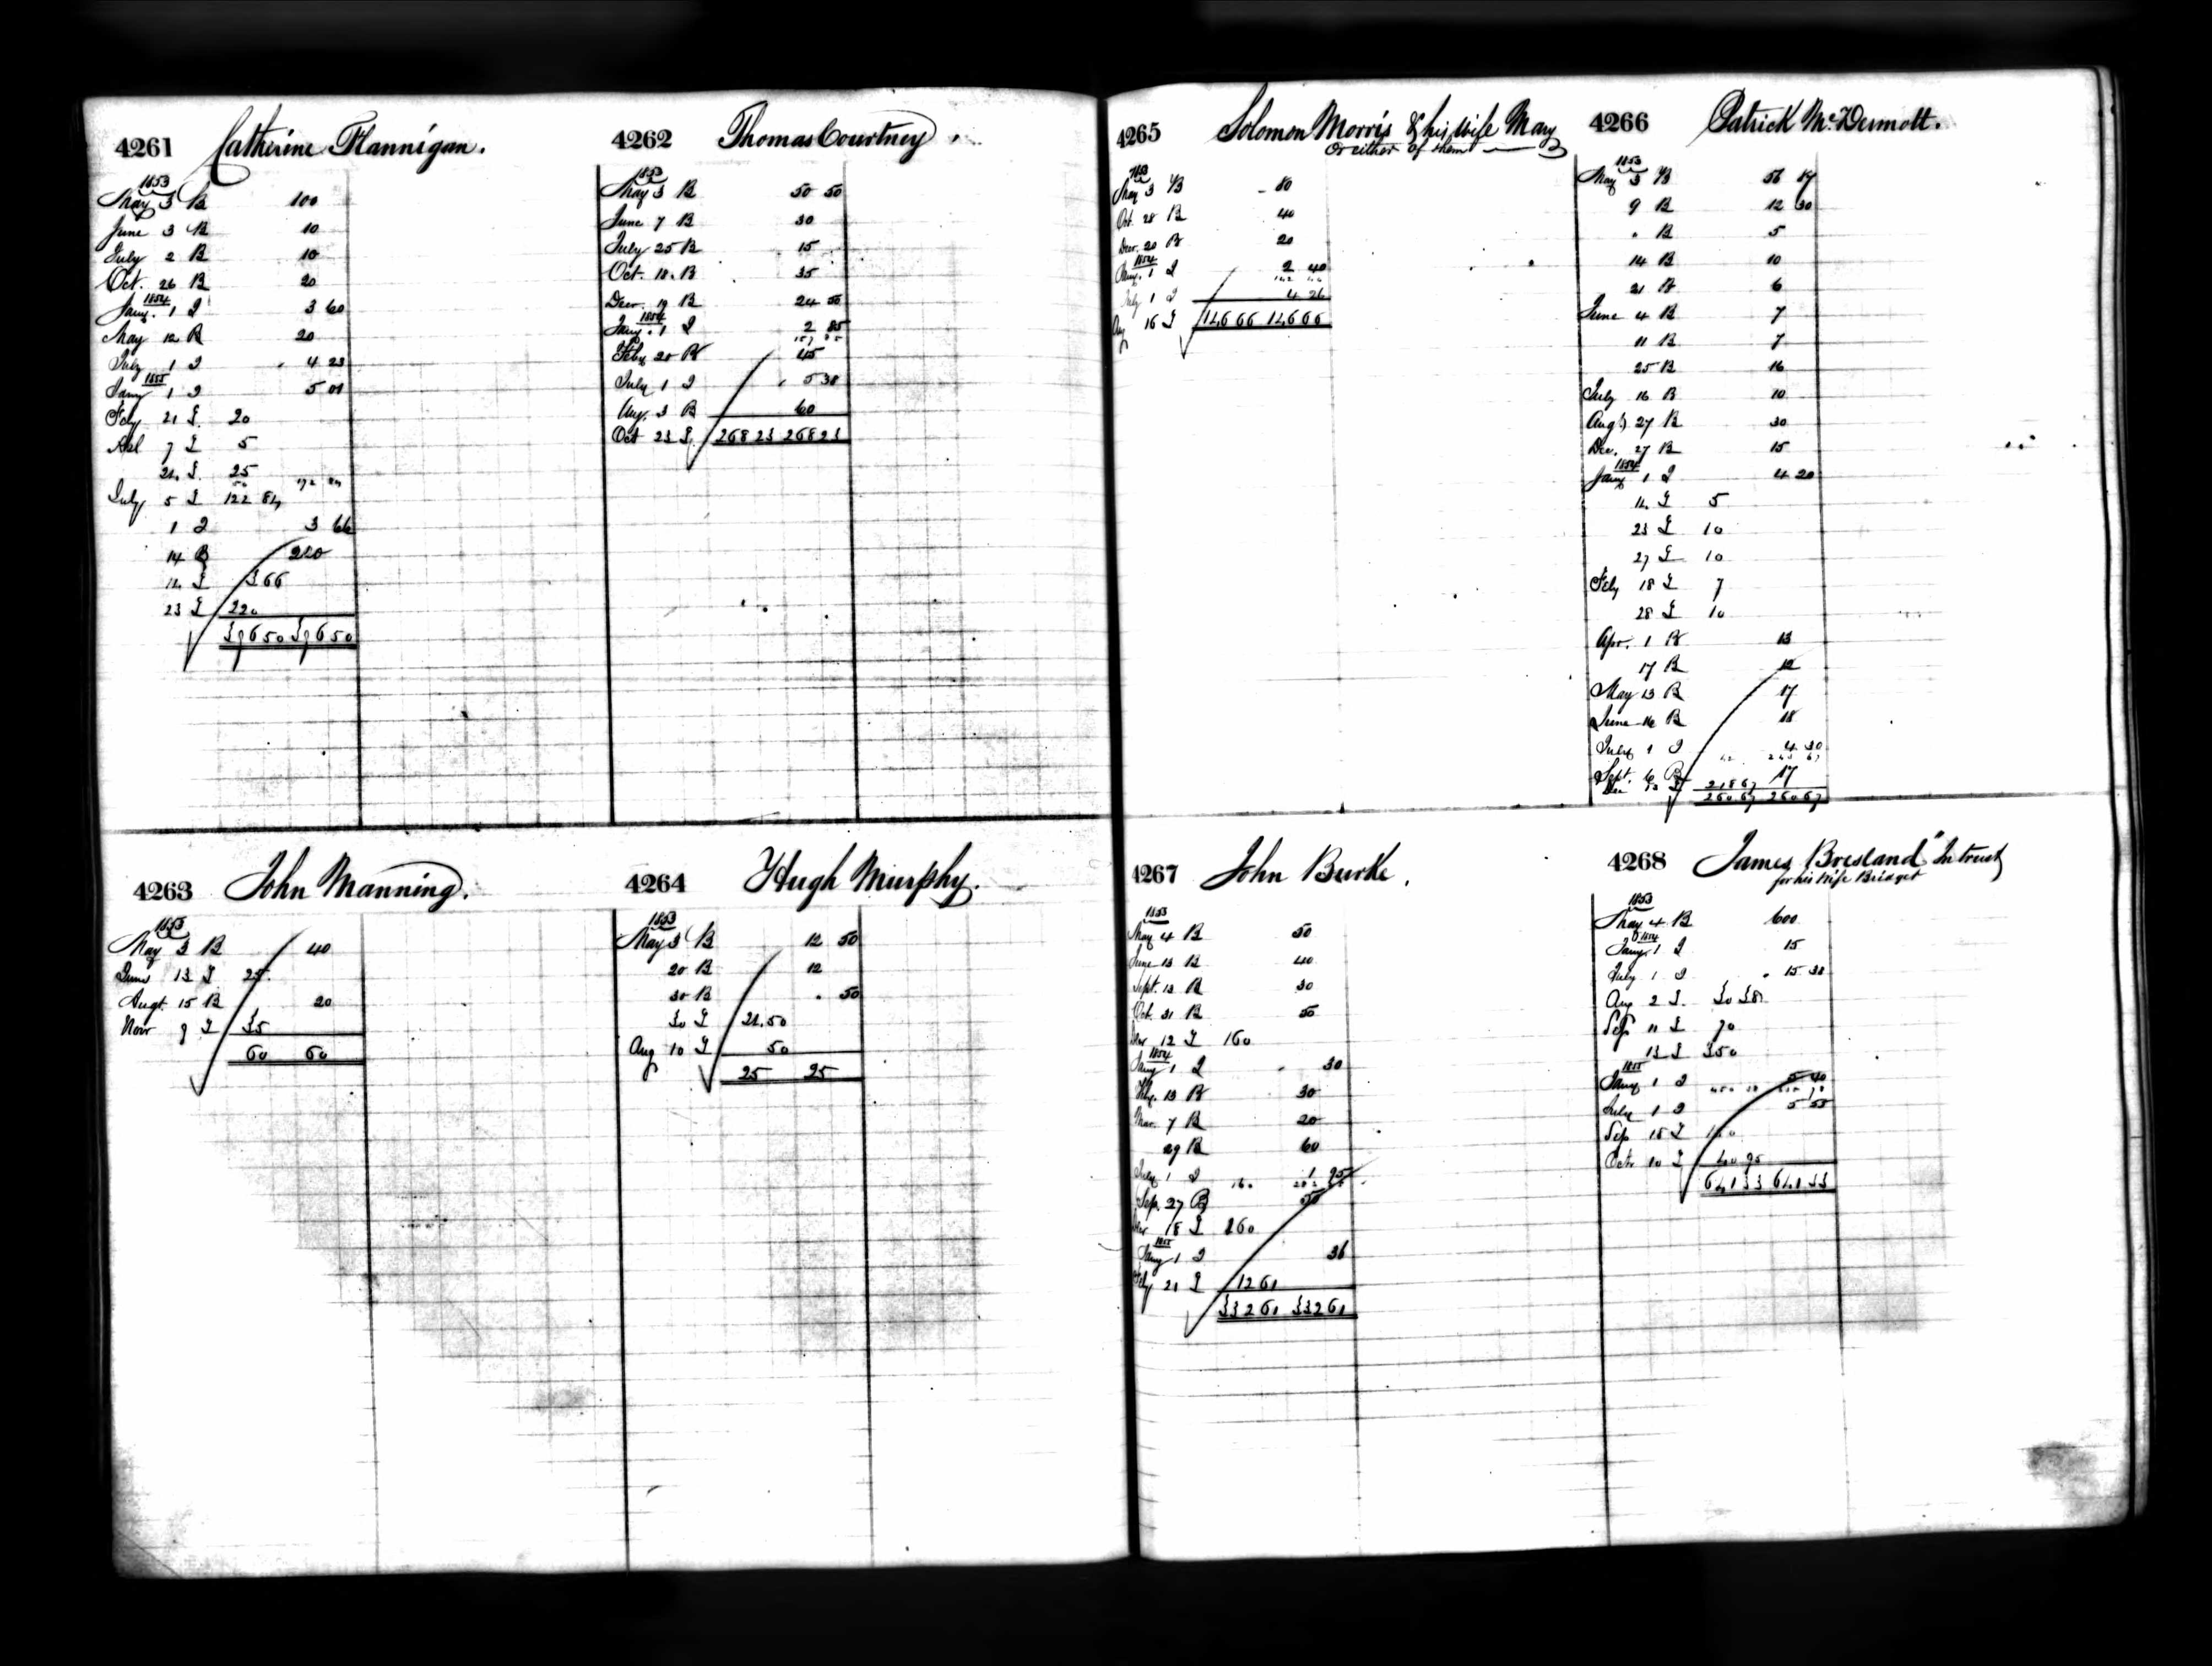 4261 Catherine Flannigan.
1853
May 3 B 100
June 3 B 10
July 2 B 10
Oct. 26 B 20
1854
Jany. 1 I 3 60
May 12 B 20
July 1 I 4 23
1855
Jany 1 I 5 01
Feby 21 D 20
Apl 7 D 5
21 D 25
July 5 D 122 84
1 I 3 66
14 B 220
12 D 3 66
23 D 220
396 50 396 50
4262 Thomas Courtney.
1853
May 3 B 50 50
June 7 B 30
July 25 B 15
Oct. 18. B 35
Decr. 19 B 24 50
1854
Jany. 1 I 2 85
Feby 20 B 45
July 1 I 5 38
Aug. 3 B 60
Oct 23 D 268 23 268 23
4263 John Manning.
1853
May 3 B 40
June 13 D 25
Augt. 15 B 20
Novr 9 D 35
60 60
4264 Hugh Murphy.
1853
May 3 B 12 50
20 B 12
30 B 50
30 D 24.50
Aug 10 D 50
25 25
4265 Solomon Morris & his wife Mary
or either of them
1853
May 3 B 80
Oct 28 B 40
Decr. 20 B 20
1854
Jany. 1 I 2 40
July 1 I 4 26
Aug 16 D 146 66 146 66
4266 Patrick McDermott.
1853
May 3 B 56 17
9 B 12 30
" B 5
14 B 10
21 B 6
June 4 B 7
11 B 7
25 B 16
July 16 B 10
Augt. 27 B 30
Dec. 27 B 15
1854
Jany 1 I 4 20
12 D 5
23 D 10
27 D 10
Feby 18 D 7
28 D 10
Apr. 1 B 13
17 B 12
May 13 B 17
June 16 B 18
July 1 I 4 30
Sept. 6 B 17
218 67
260 67 260 67
4267 John Burke.
1853
May 4 B 50
June 13 B 40
Sept. 13 B 30
Oct. 31 B 50
Decr 12 D 160
1854
Jany 1 I 30
Feby. 13 B 30
Mar. 7 B 20
29 B 60
July 1 I 1 95
Sep. 27 B 50
Decr 18 D 160
1855
Jany 1 I 36
Feby 21 D 12 61
332 61 332 61
4268 James Bresland "In trust
for his wife Bridget
1853
May 4 B 600
1854
Jany. 1 I 15
July 1 I 15 38
Aug 2 D 30 38
Sep 11 D 70
13 D 350
1855
Jany 1 I 5 40
July 1 I 5 55
Sep 15 D 150
Octr 10 D 40 95
641 33 641 33